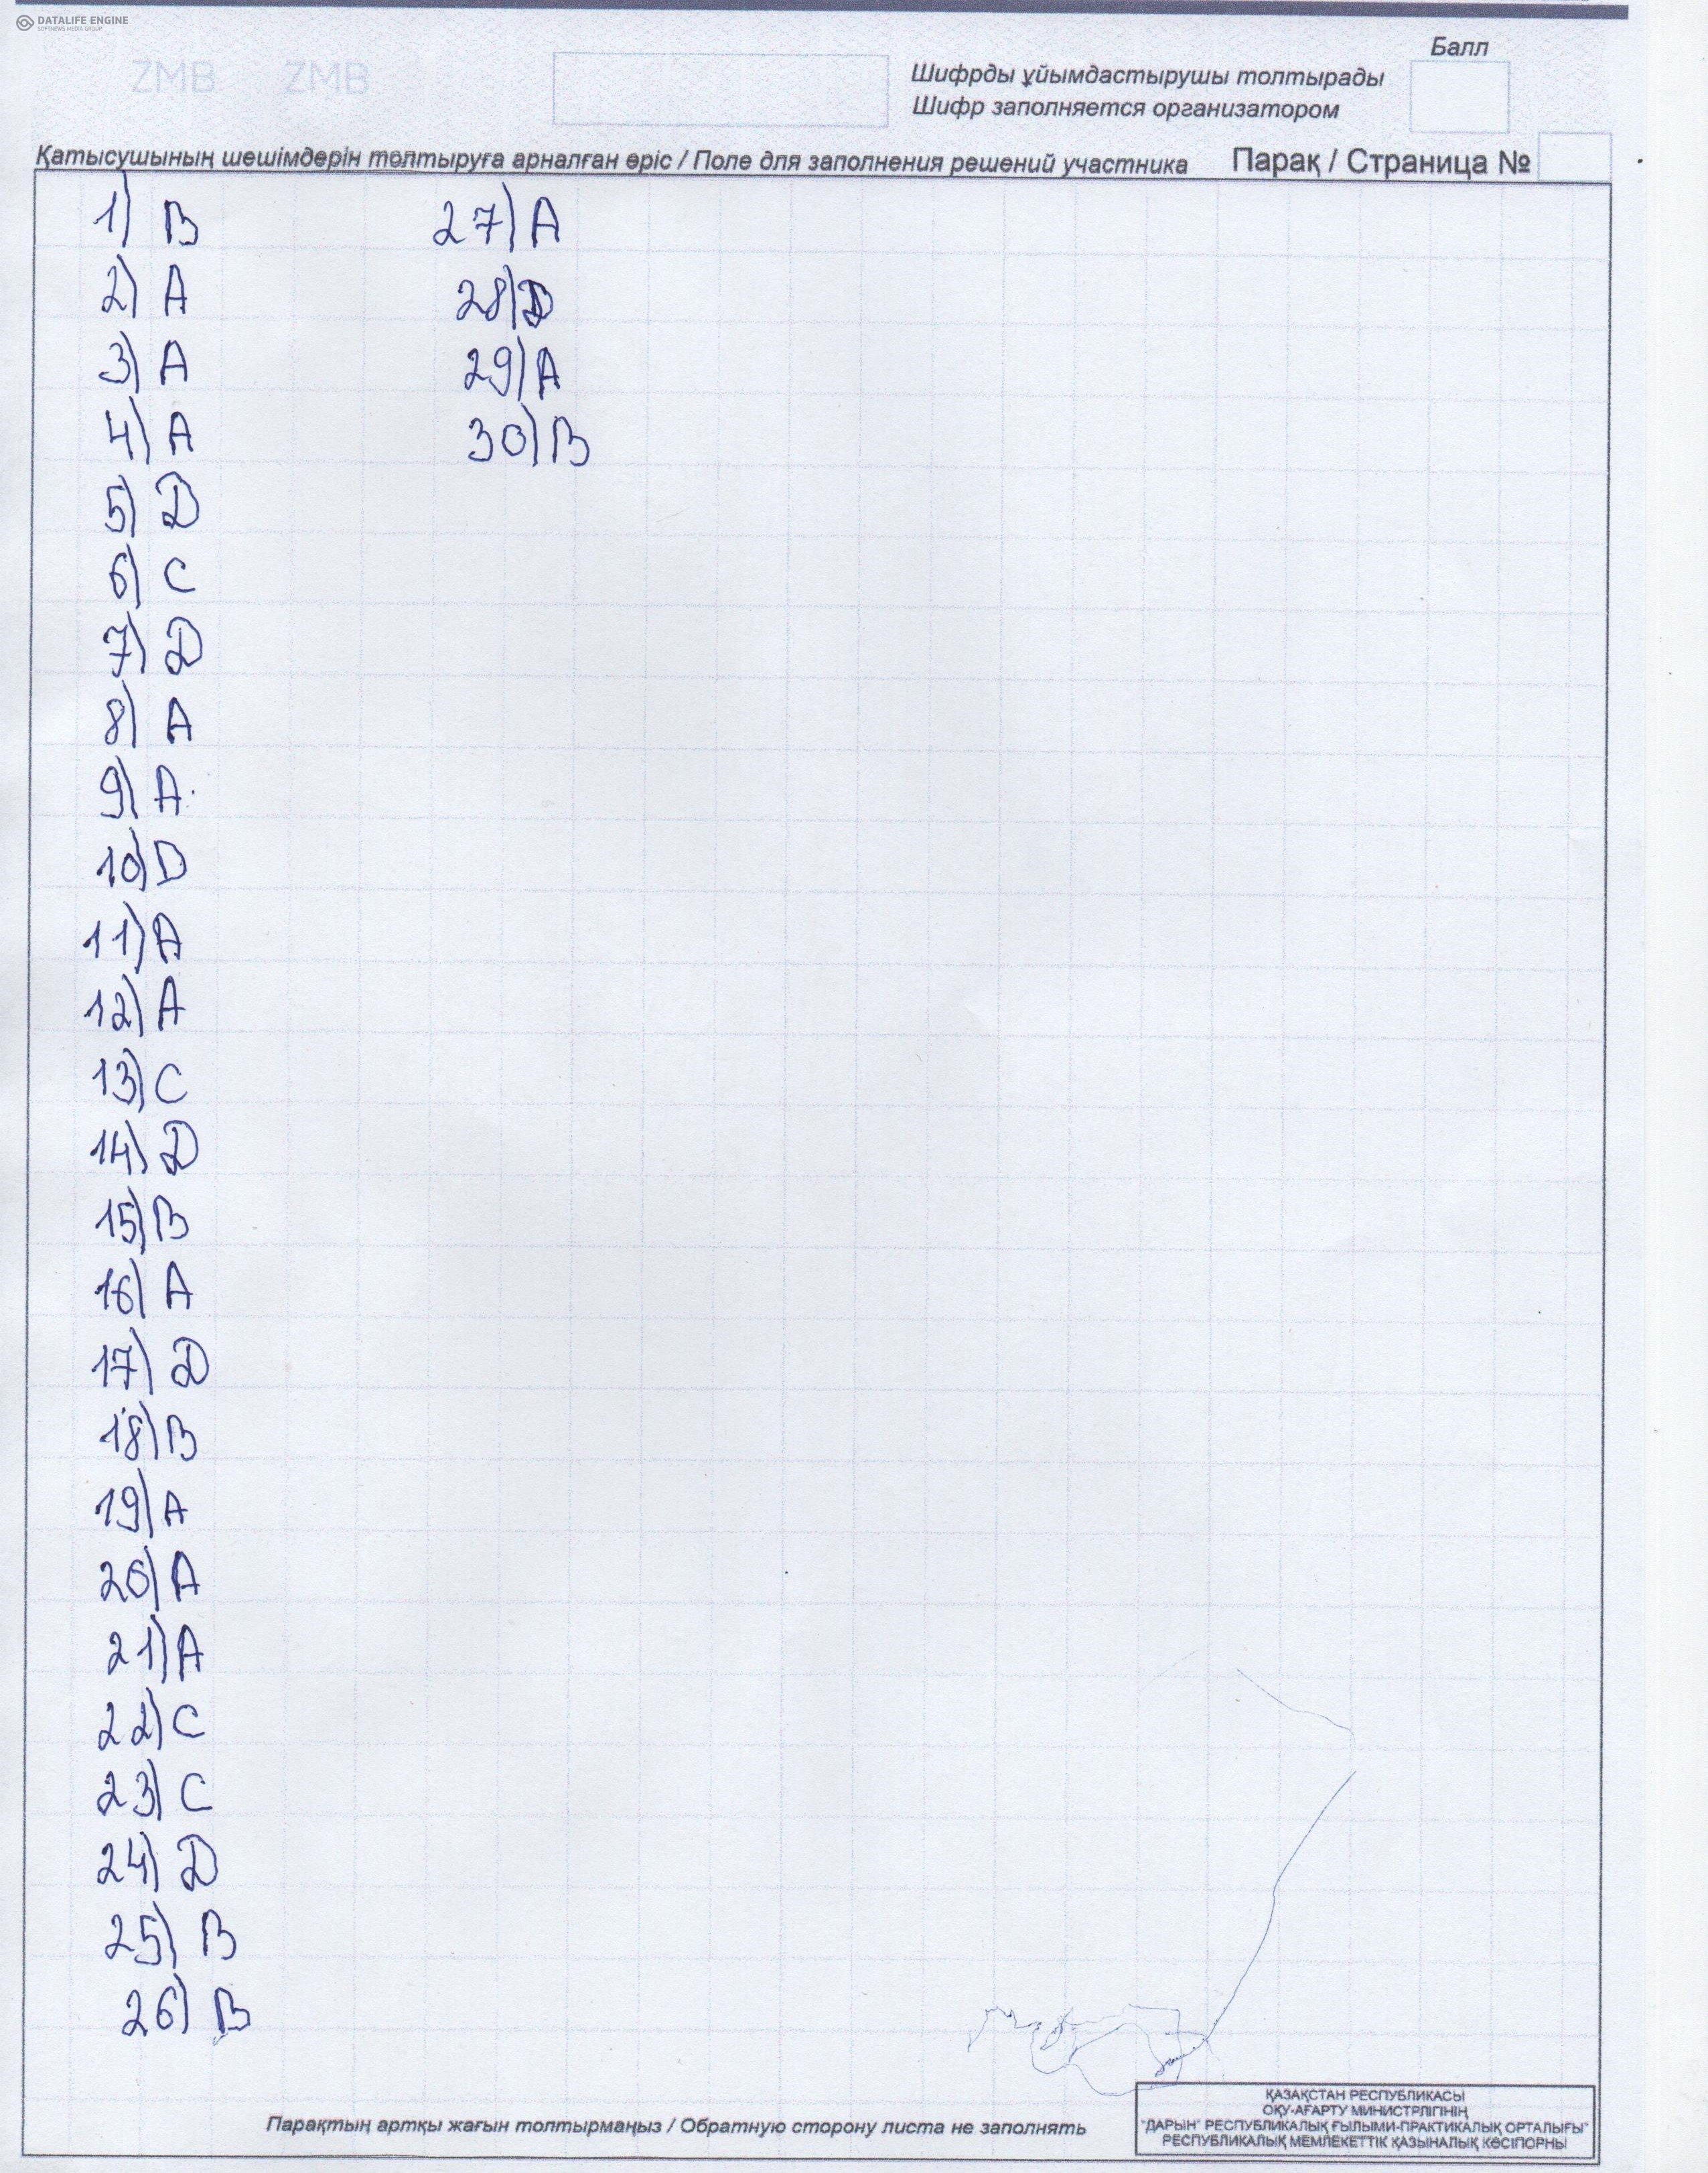 DATALIFE ENGINE
SOFTNEWS MEDIA GROUP
Балл
ZMB ZMB
Шифрды ұйымдастырушы толтырады
Шифр заполняется организатором
Қатысушының шешімдерін толтыруға арналған өріс / Поле для заполнения решений участника Парақ / Страница №
1) B
2) A
3) A
4) A
5) D
6) C
7) D
8) A
9) A
10) D
11) A
12) A
13) C
14) D
15) B
16) A
17) D
18) B
19) A
20) A
21) A
22) C
23) C
24) D
25) B
26) B
27) A
28)
29) A
30) B
Парақтың артқы жағын толтырмаңыз / Обратную сторону листа не заполнять
ҚАЗАҚСТАН РЕСПУБЛИКАСЫ
ОҚУ-АҒАРТУ МИНИСТРЛІГІНІҢ
"ДАРЫН" РЕСПУБЛИКАЛЫҚ ҒЫЛЫМИ-ПРАКТИКАЛЫҚ ОРТАЛЫҒЫ"
РЕСПУБЛИКАЛЫҚ МЕМЛЕКЕТТІК ҚАЗЫНАЛЫҚ КӘСІПОРНЫ